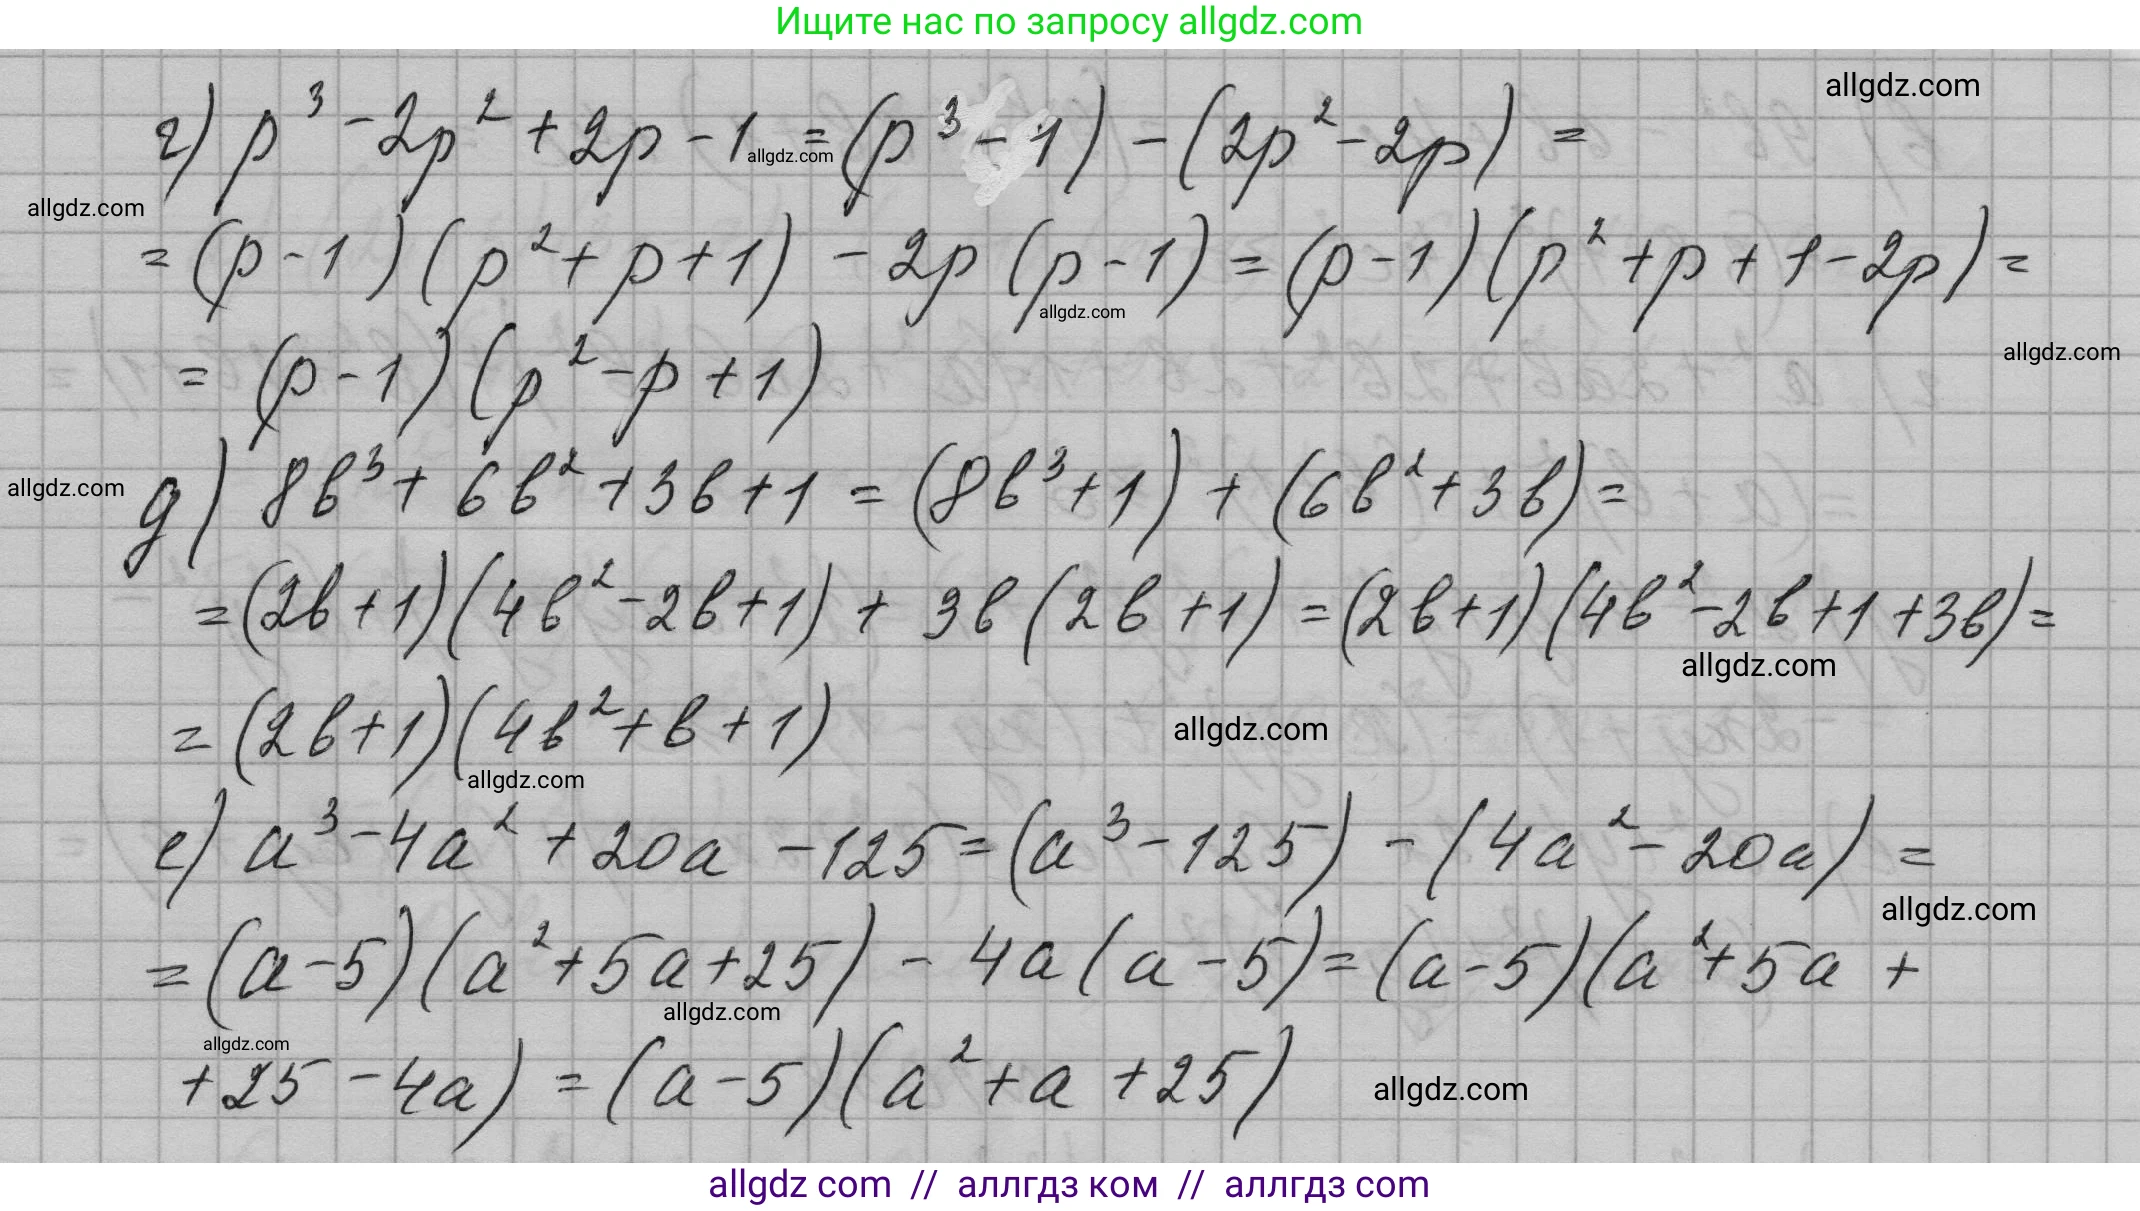 Ищите нас по запросу allgdz.com
allgdz.com
г) p³ - 2p² + 2p - 1 = (p³ - 1) - (2p² - 2p) =
allgdz.com
allgdz.com
= (p - 1)(p² + p + 1) - 2p(p - 1) = (p - 1)(p² + p + 1 - 2p) =
allgdz.com
allgdz.com
= (p - 1)(p² - p + 1)
allgdz.com
д) 8b³ + 6b² + 3b + 1 = (8b³ + 1) + (6b² + 3b) =
= (2b + 1)(4b² - 2b + 1) + 3b(2b + 1) = (2b + 1)(4b² - 2b + 1 + 3b) =
allgdz.com
= (2b + 1)(4b² + b + 1)
allgdz.com
allgdz.com
е) a³ - 4a² + 20a - 125 = (a³ - 125) - (4a² - 20a) =
allgdz.com
= (a - 5)(a² + 5a + 25) - 4a(a - 5) = (a - 5)(a² + 5a +
allgdz.com
allgdz.com
+ 25 - 4a) = (a - 5)(a² + a + 25)
allgdz.com
allgdz com // аллгдз ком // аллгдз com